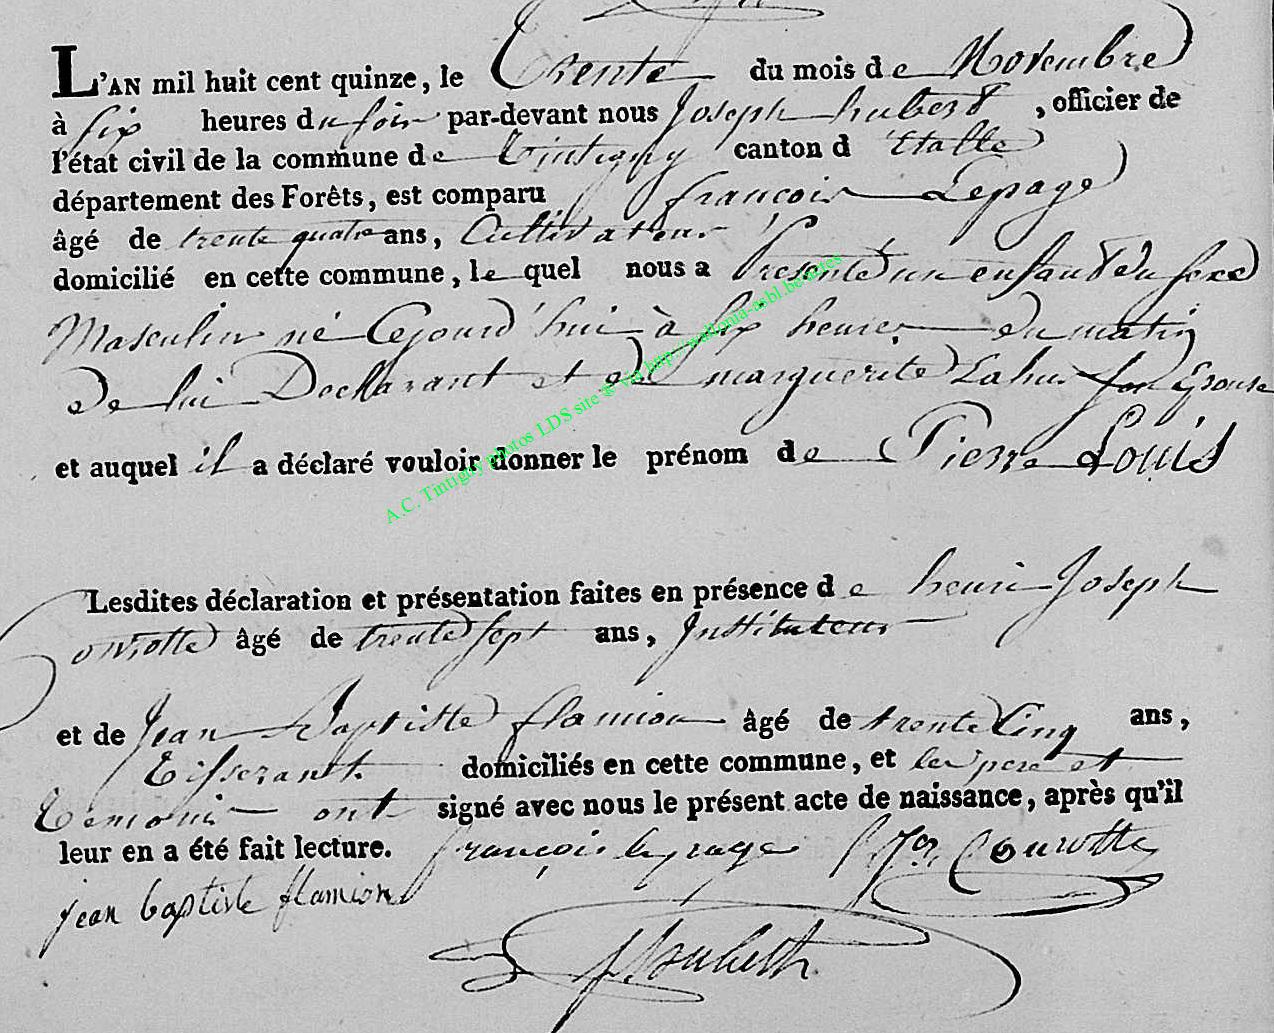 L'AN mil huit cent quinze, le Trente du mois de Novembre
à six heures du soir par-devant nous Joseph hubert, officier de
l'état civil de la commune de Tintigny canton d'Etalle
département des Forêts, est comparu francois Lepage
âgé de trente quatre ans, Cultivateur
domicilié en cette commune, le quel nous a Presenté un enfant du sexe
Masculin né Cejourd'hui à six heures du matin
De lui Declarant et de marguerite Lahur son Epouse
et auquel il a déclaré vouloir donner le prénom de Pierre Louis
Lesdites déclaration et présentation faites en présence de henri Joseph
Courotte âgé de trente sept ans, Instituteur
et de Jean Baptiste flamion âgé de trente Cinq ans,
Tisserant domiciliés en cette commune, et les pere et
Temoins ont signé avec nous le présent acte de naissance, après qu'il
leur en a été fait lecture. françois lepage Courotte
jean baptiste flamion
J. houbert
A.C. Tintigny photos LDS site & via http://wallonia-asbl.be/actes